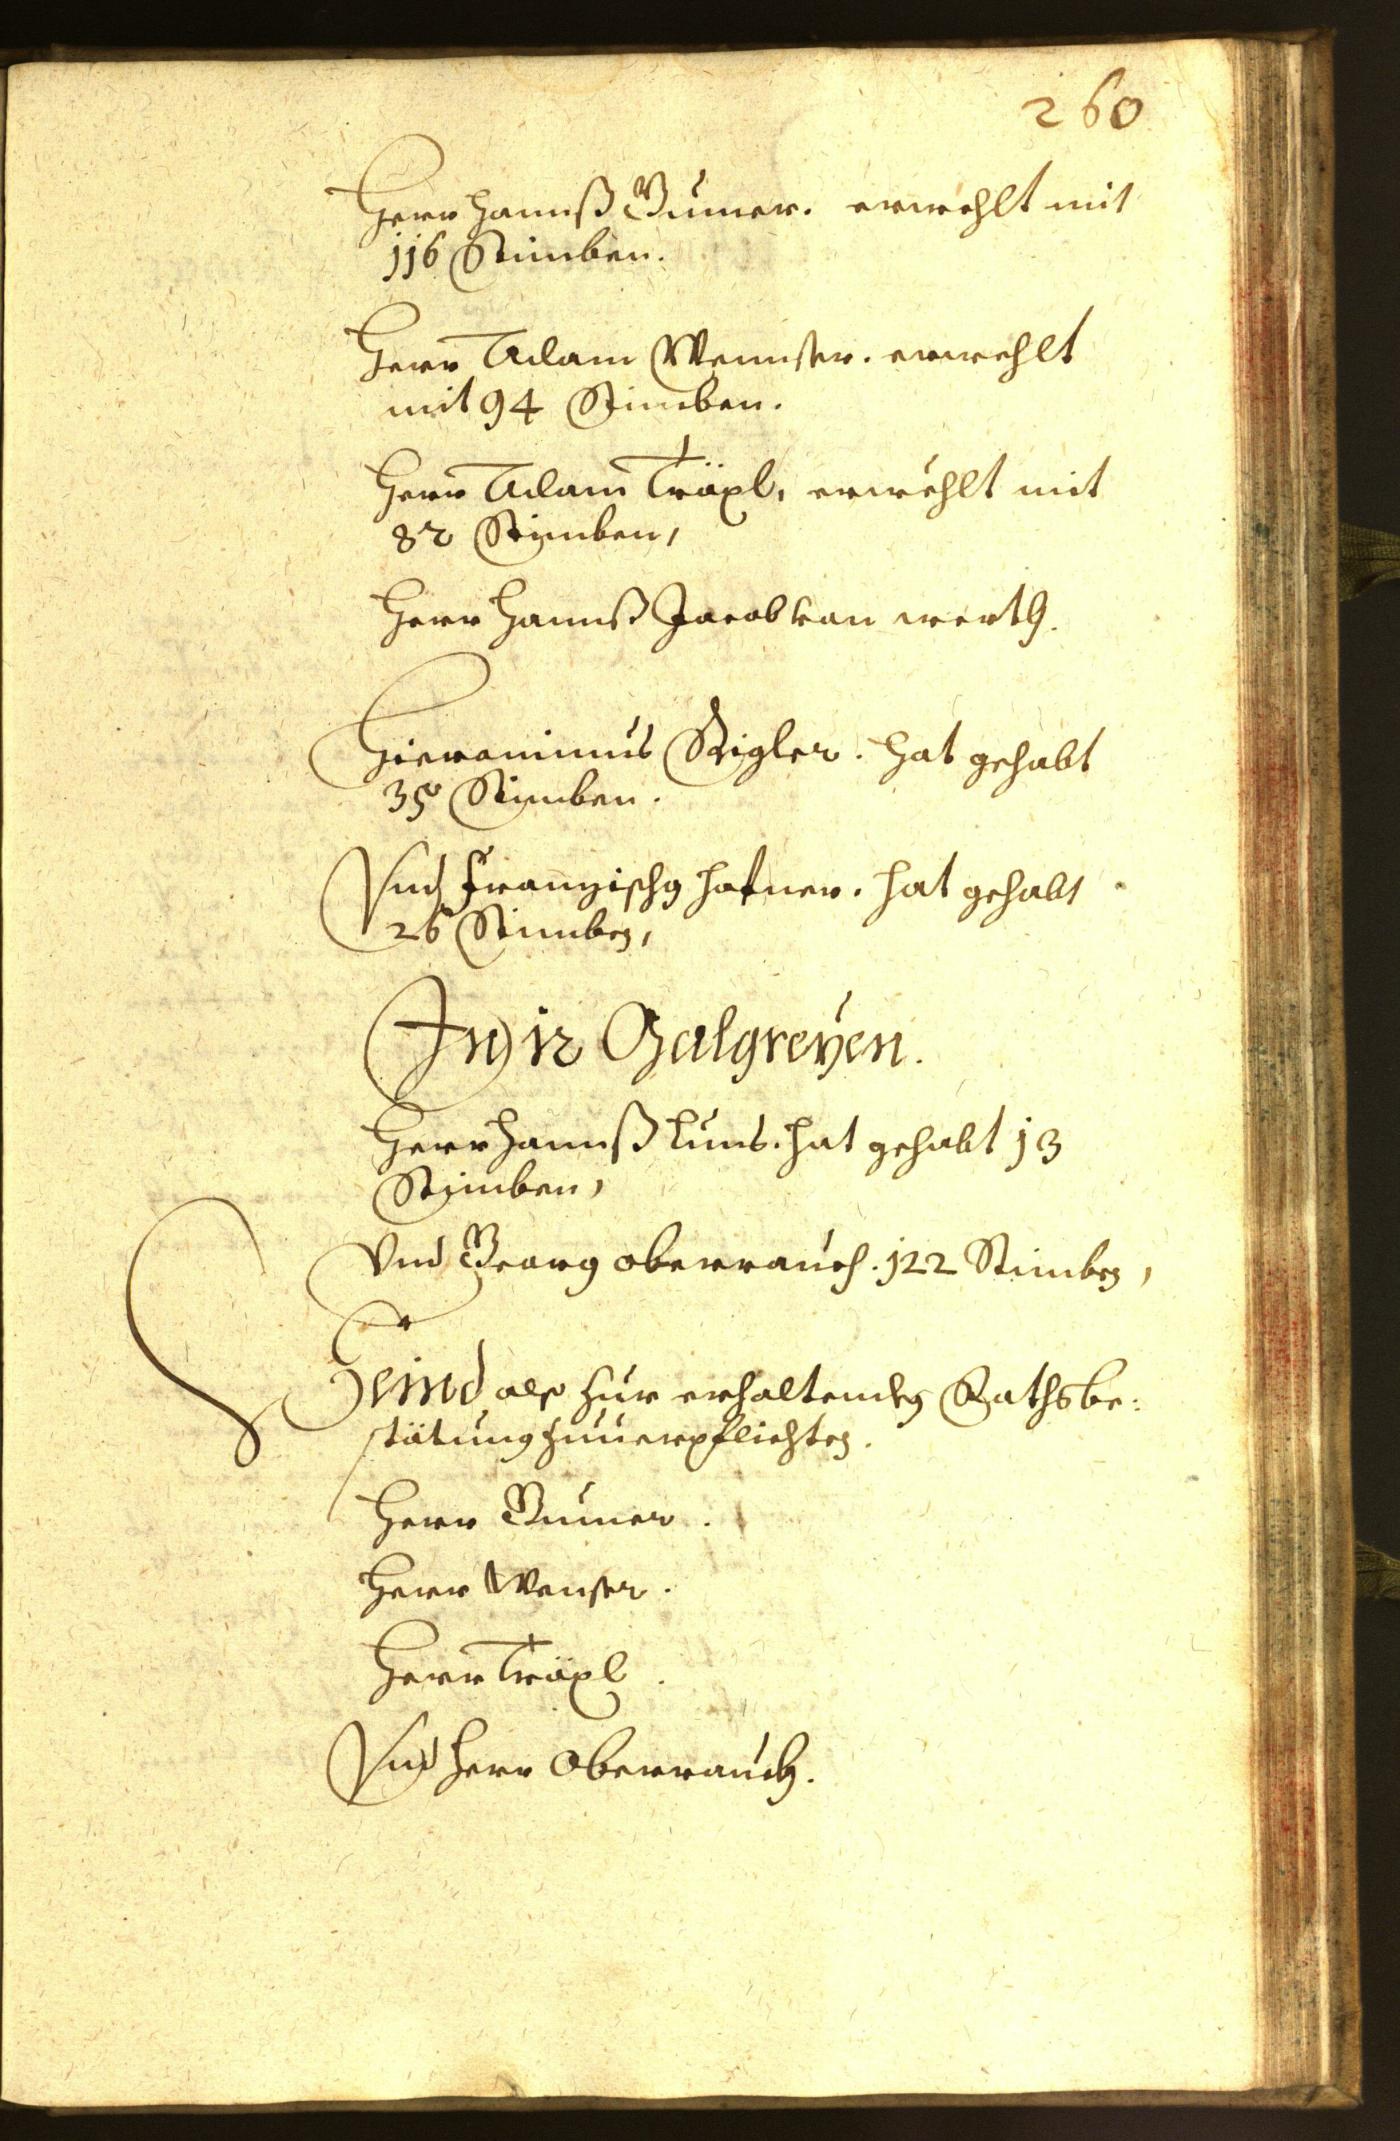 260
Herr Hannß Gumer. erwehlt mit
116 Stimben.
Herr Adam Wennser. erwehlt
mit 94 Stimben.
Herr Adam Träxl, erwehlt mit
82 Stimben,
Herr Hannß Jacob von werth.
Hieronimus Stigler. hat gehabt
35 Stimben.
Vnd Franzischg Hafner. hat gehabt
26 Stimben,
In der Galgreÿen.
Herr Hannß Luns. hat gehabt 13
Stimben,
Vnd Georg oberrauch. 122 Stimben,
Seind also zur erhaltenden Rathsbe:
stätung zuuerpflichten.
Herr Gumer.
Herr Wenser.
Herr Träxl.
Vnd Herr Oberrauch.